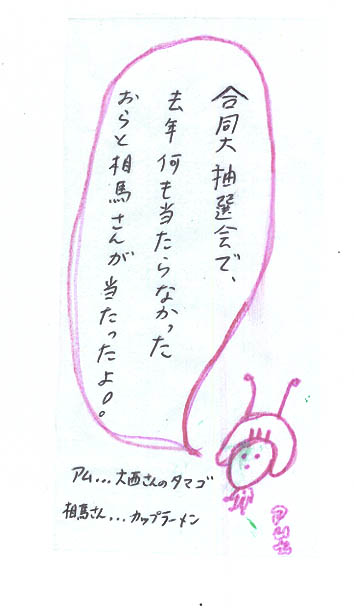 合同大抽選会で、
去年何も当たらなかった
おらと相馬さんが当たったよ○。
アム...大西さんのタマゴ
相馬さん...カップラーメン